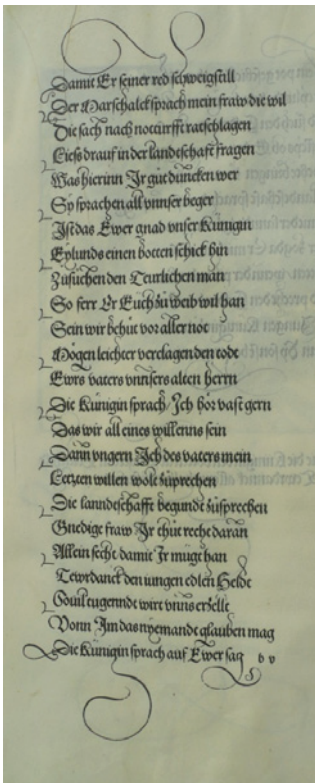 Damit Er seiner red schweigstill
Der Marschalck sprach mein fraw die wil
Die sach nach notturfft ratschlagen
Liess drauf in der landtschafft fragen
Was hierinn Ir güt duncken wer
Sy sprachen all vnnser beger
Ist das Ewer gnad vnser Künigin
Eylunds einen botten schick hin
Zusüchen den Teurlichen man
So ferr Er Euch zü weib wil han
Sein wir behüt vor aller not
Mögen leichter verclagen den todt
Ewrs vaters vnnsers alten herrn
Die Künigin sprach / Ich hör vast gern
Das wir all eines willenns sein
Dann vngern Ich des vaters mein
Letzten willen wolt züprechen
Die lanndtschafft begundt züsprechen
Gnedige fraw Ir thüt recht daran
Allein secht damit Ir mügt han
Tewrdanck den iungen edlen Helde
Souil tugennde wirt vnns erzelt
Vonn Im das nyemandt glauben mag
Die Künigin sprach auf Ewer sag b v